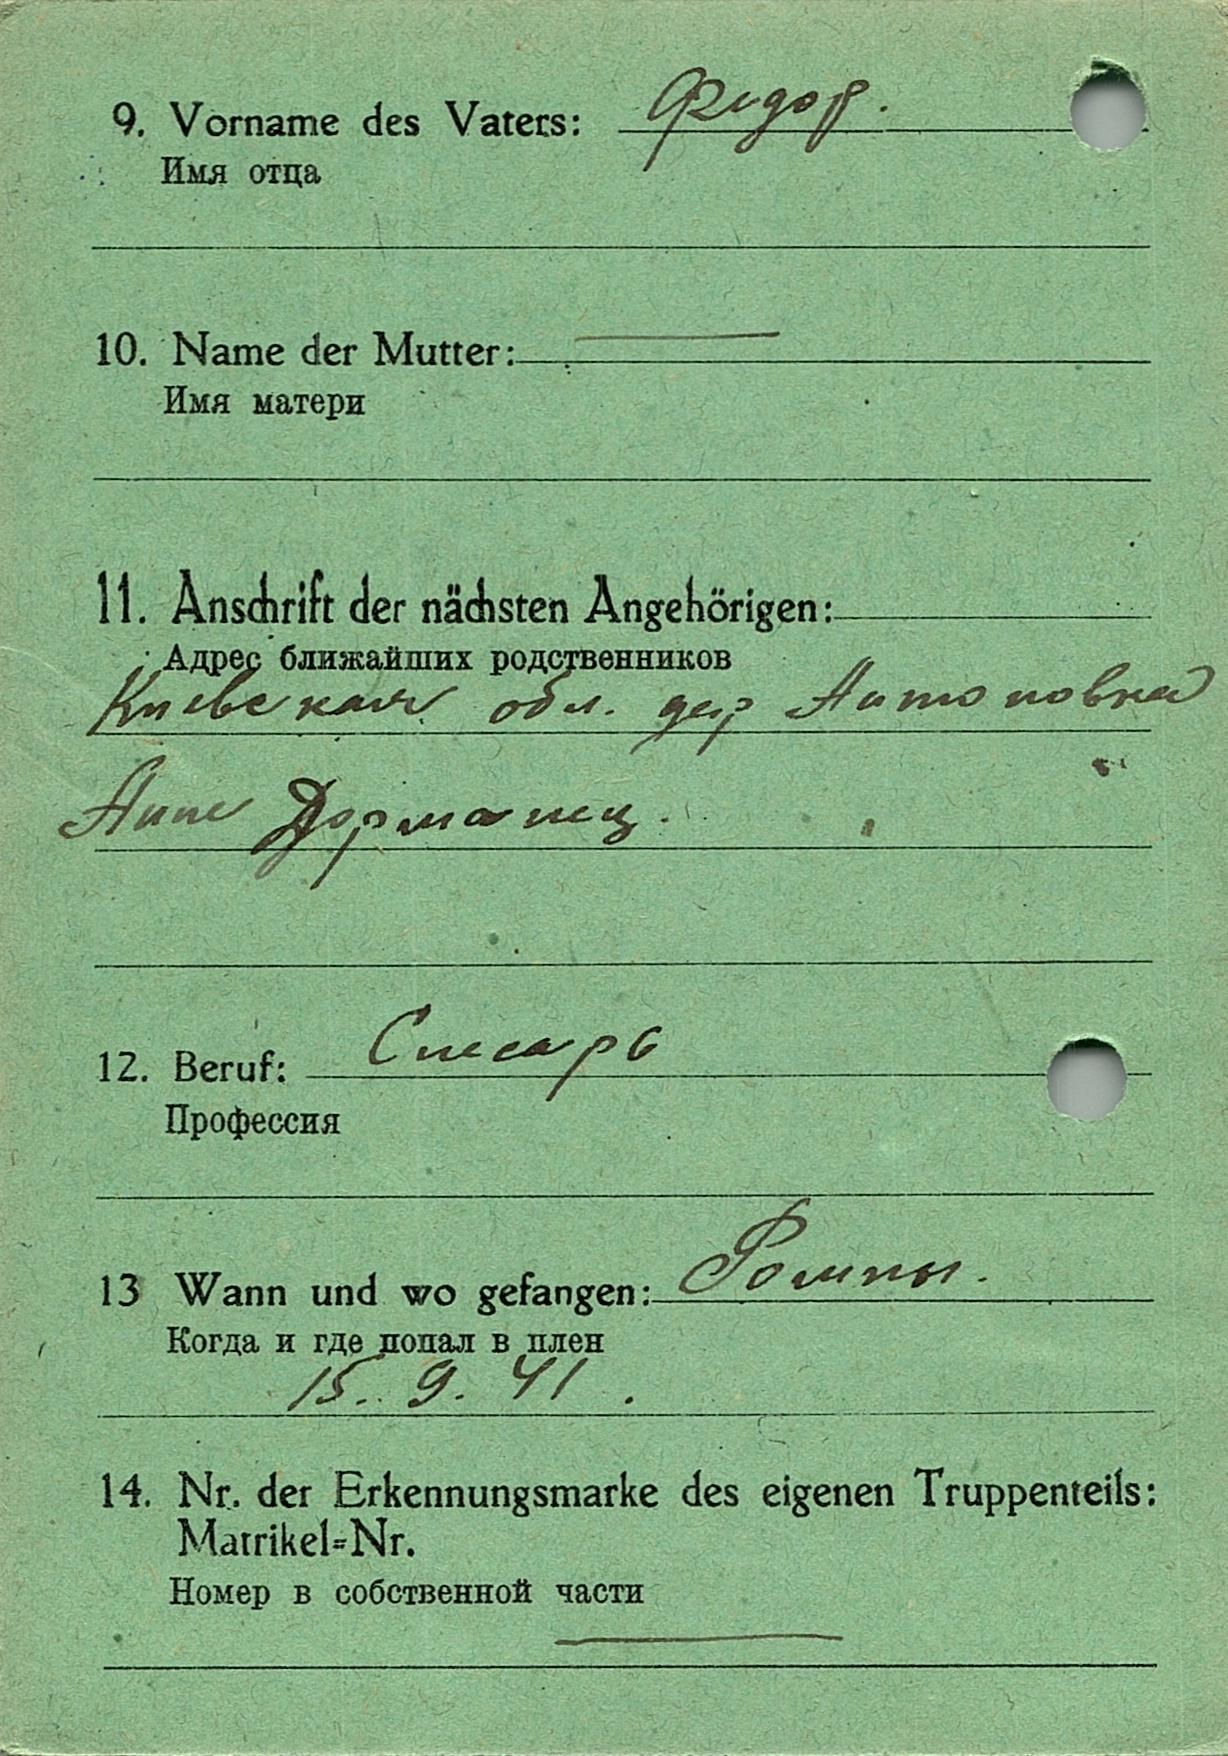 9. Vorname des Vaters: Федор.
Имя отца
10. Name der Mutter: —
Имя матери
11. Anschrift der nächsten Angehörigen:
Адрес ближайших родственников
Киевская обл. дер Антоновка
Анне Дорманец.
12. Beruf: Слесарь
Профессия
13 Wann und wo gefangen: Ромны.
Когда и где попал в плен
15. 9. 41.
14. Nr. der Erkennungsmarke des eigenen Truppenteils:
Matrikel=Nr.
Номер в собственной части
—